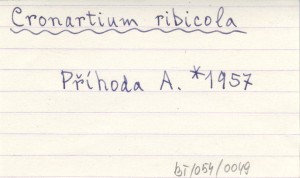 Cronartium ribicola
Příhoda A. *1957
bT/054/0049